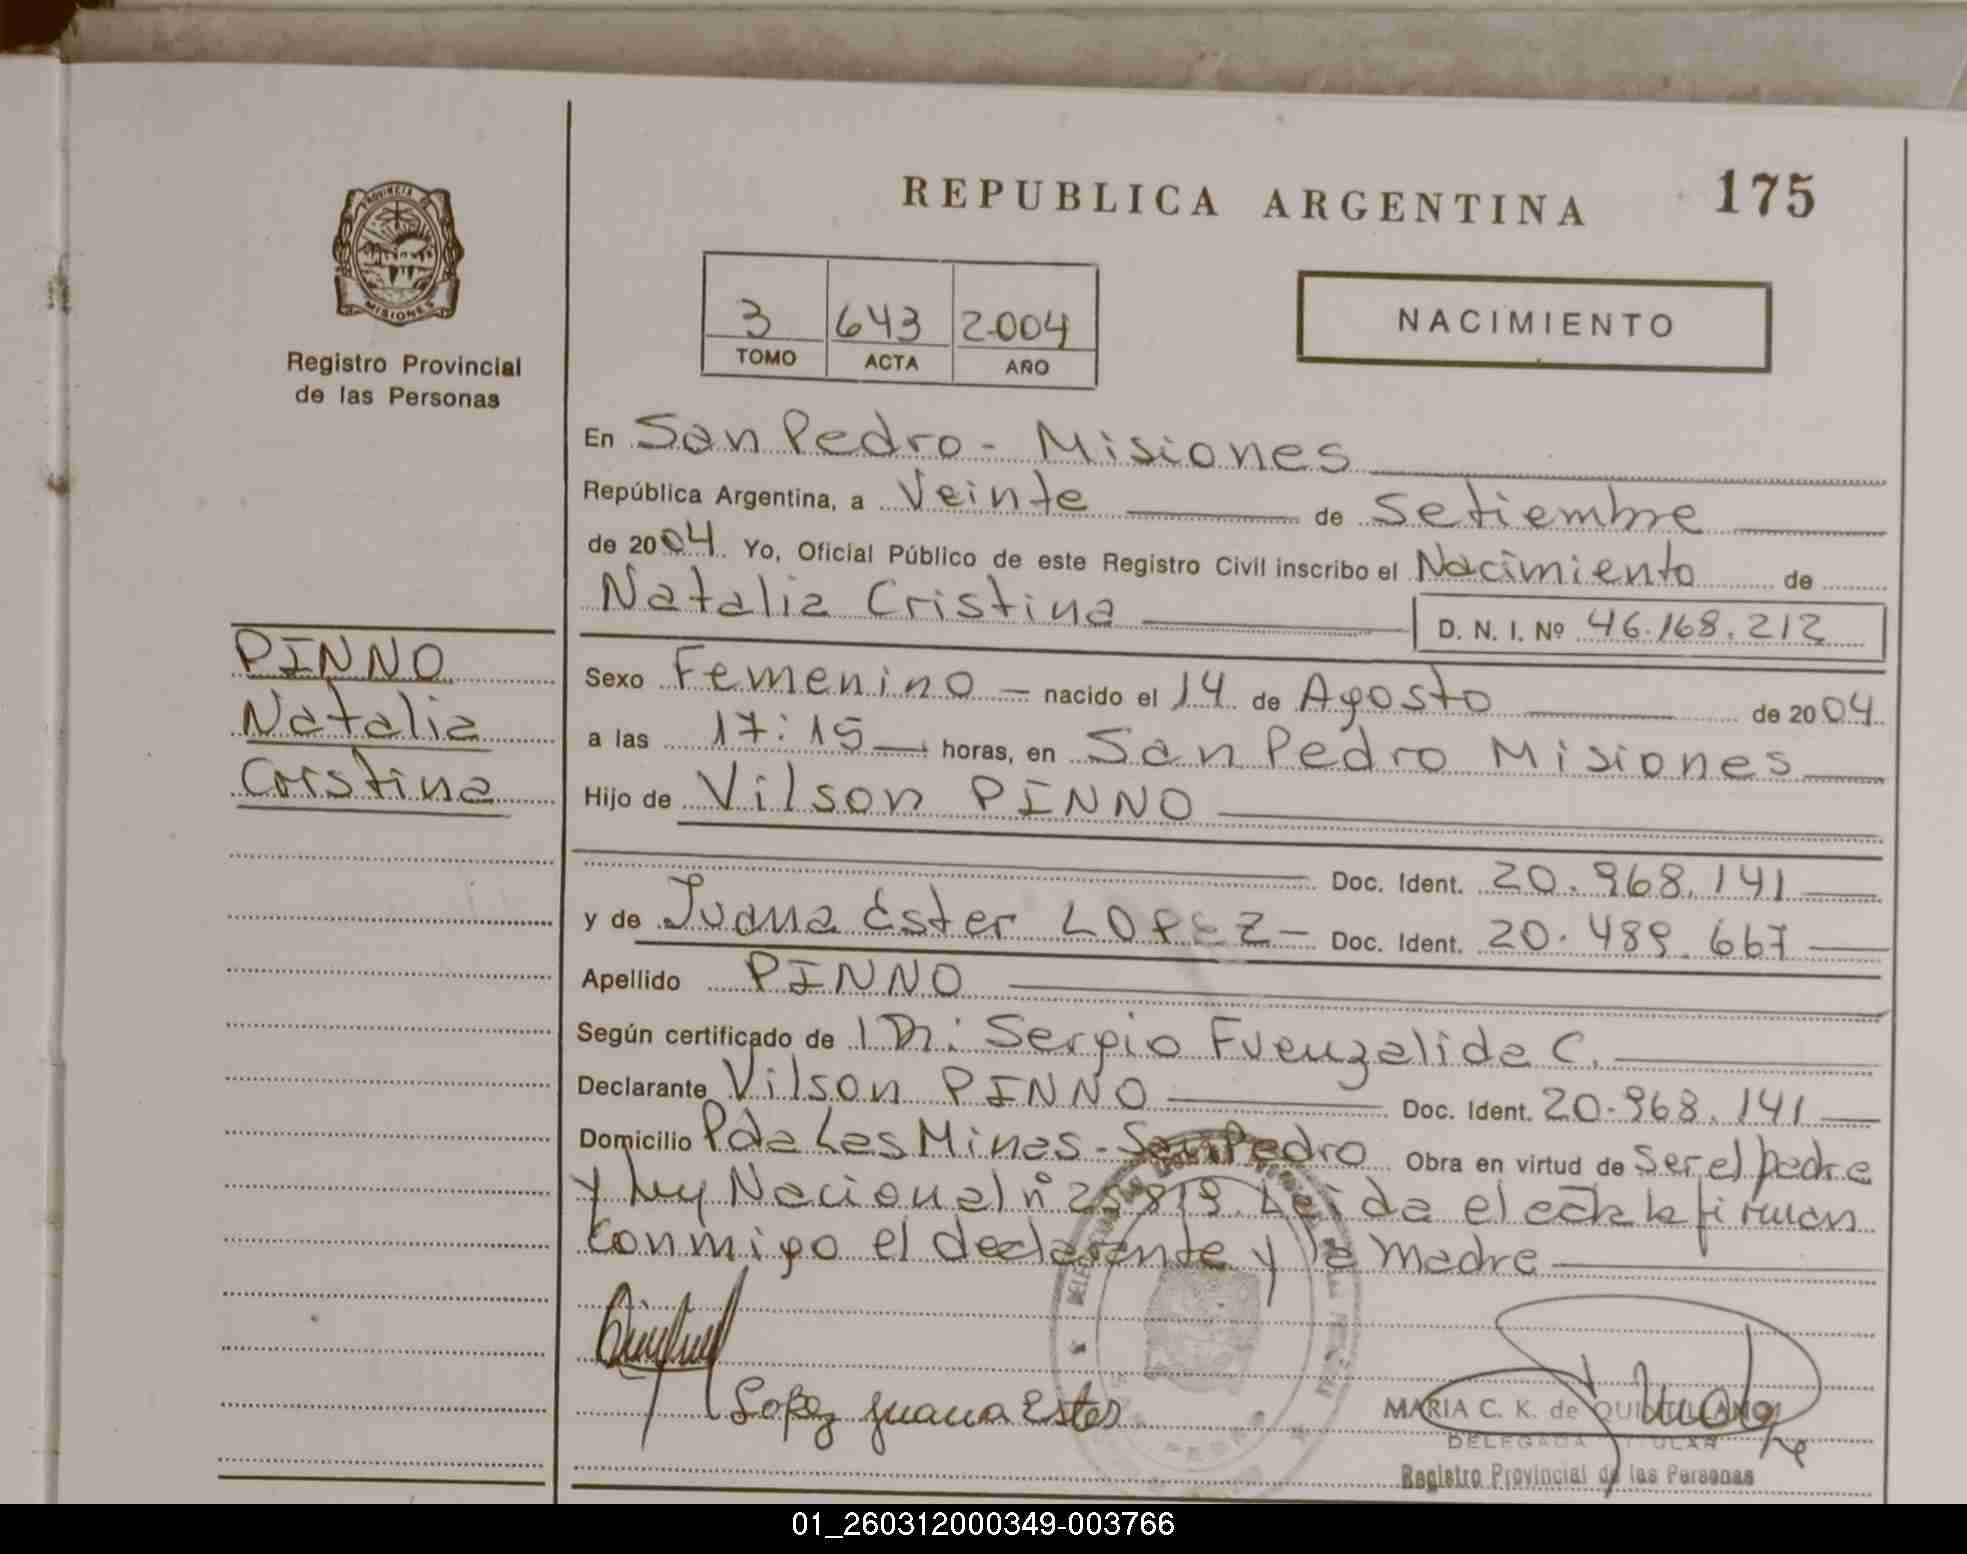 REPUBLICA ARGENTINA 175
PROVINCIA DE
MISIONES
Registro Provincial
de las Personas
3 643 2004
TOMO ACTA AÑO
NACIMIENTO
En San Pedro - Misiones
República Argentina, a Veinte de Setiembre
de 2004 Yo, Oficial Público de este Registro Civil inscribo el Nacimiento de
Natalia Cristina D. N. I. Nº 46.168.212
PINNO
Natalia
Cristina
Sexo Femenino - nacido el 14 de Agosto de 2004
a las 17:15 horas, en San Pedro Misiones
Hijo de Vilson PINNO
Doc. Ident. 20.968.141
y de Juana Ester LOPEZ - Doc. Ident. 20.489.667
Apellido PINNO
Según certificado de Dr: Sergio Fuenzalida C.
Declarante Vilson PINNO Doc. Ident. 20.968.141
Domicilio Pda Las Minas - San Pedro Obra en virtud de Ser el padre
y Ley Nacional nº 25.819. Leida el acta la firman
conmigo el declarante y la madre
Lopez Juana Ester
MARIA C. K. de QUINTILLANO
DELEGADA TITULAR
Registro Provincial de las Personas
01_260312000349-003766